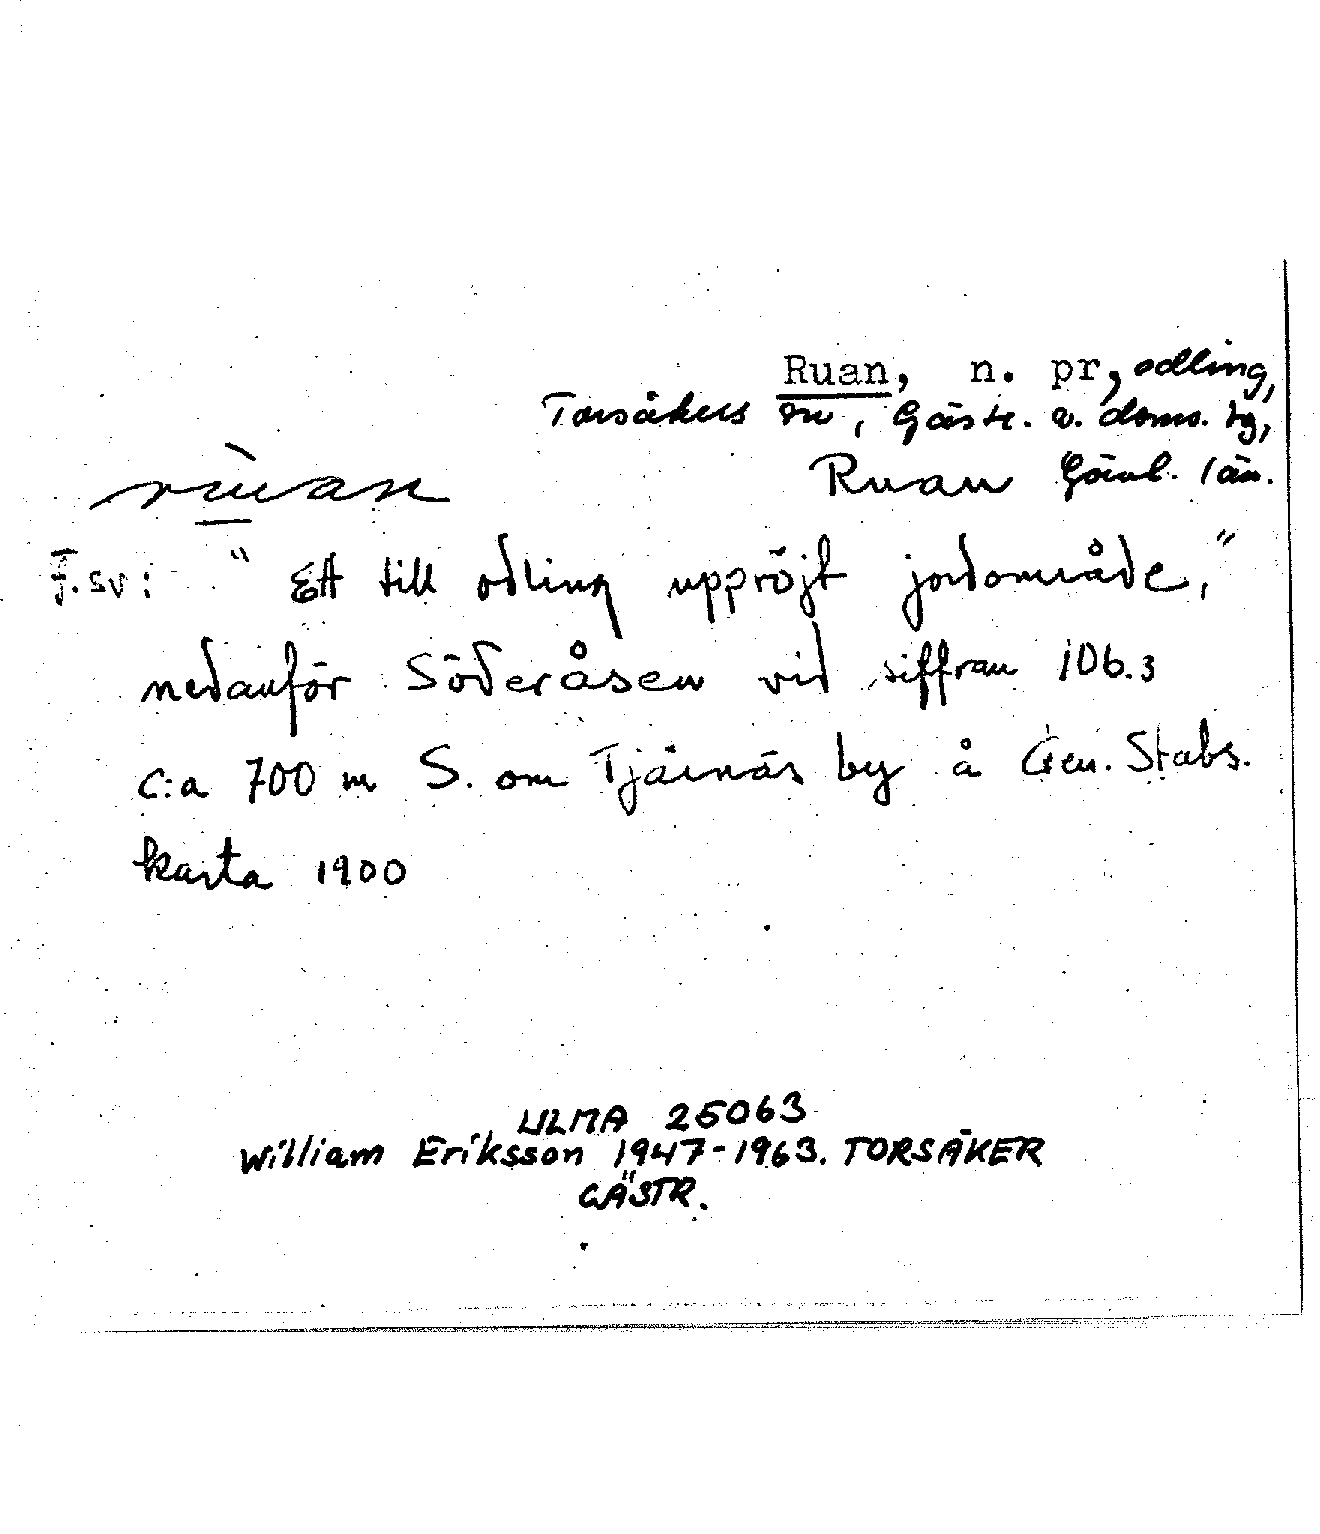 Ruan, n. pr, odling,
Torsåkers sn, Gästr. v. doms. tg,
Ruan Gävl. län.
rùan
F.sv: "Ett till odling uppröjt jordområde,"
nedanför Söderåsen vid siffran 106.3
c:a 700 m S. om Tjärnäs by å Gen. Stabs.
karta 1900
ULMA 25063
William Eriksson 1947-1963. TORSÅKER
GÄSTR.